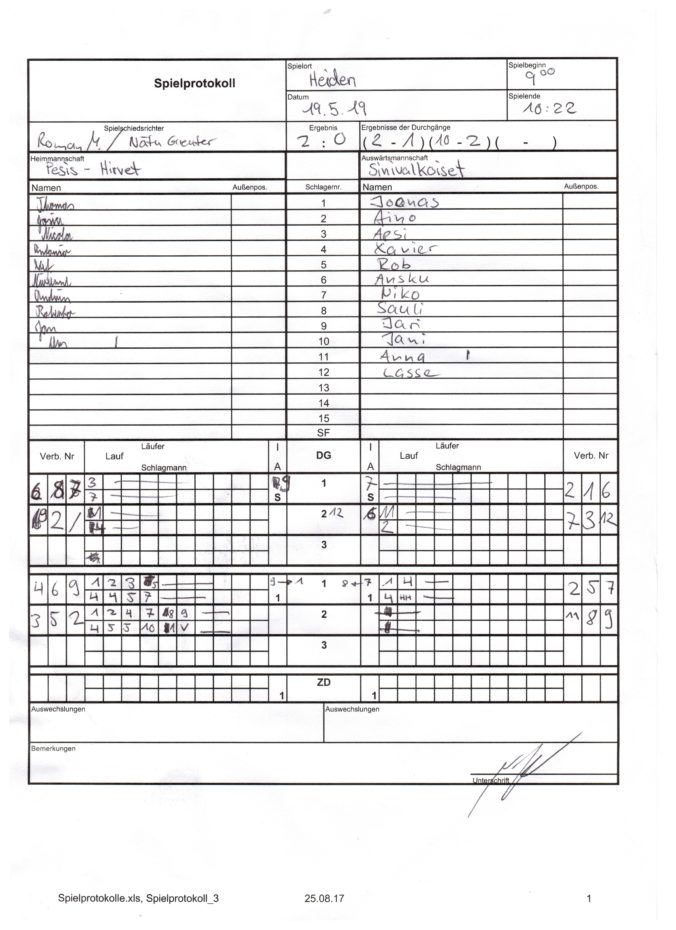 Spielprotokoll
Spielort
Heiden
Spielbeginn
9 00
Datum
19.5.19
Spielende
10:22
Spielschiedsrichter
Roman M. / Nätu Greuter
Ergebnis
2 : 0
Ergebnisse der Durchgänge
(2 - 1)(10 - 2)( - )
Heimmannschaft
Pesis - Hirvet
Auswärtsmannschaft
Sinivalkoiset
Namen Außenpos. Schlagernr. Namen Außenpos.
Thomas 1 Joonas
2 Aino
Nicola 3 Apsi
Antonio 4 Xavier
5 Rob
6 Ansku
7 Niko
8 Sauli
Jan 9 Jari
10 Jani
11 Anna
12 Lasse
13
14
15
SF
Verb. Nr Lauf Läufer Schlagmann I A DG I A Lauf Läufer Schlagmann Verb. Nr
3 1 7 2 1 6
7 S S
2 12 7 3 12
2
3
4 6 9 1 2 3 9→1 1 8←7 1 4 2 5 7
4 4 5 7 1 1 4 HH
3 5 2 1 2 4 7 9 2 11 8 9
4 5 5 10
3
ZD
1 1
Auswechslungen Auswechslungen
Bemerkungen
Unterschrift
Spielprotokolle.xls, Spielprotokoll_3 25.08.17 1